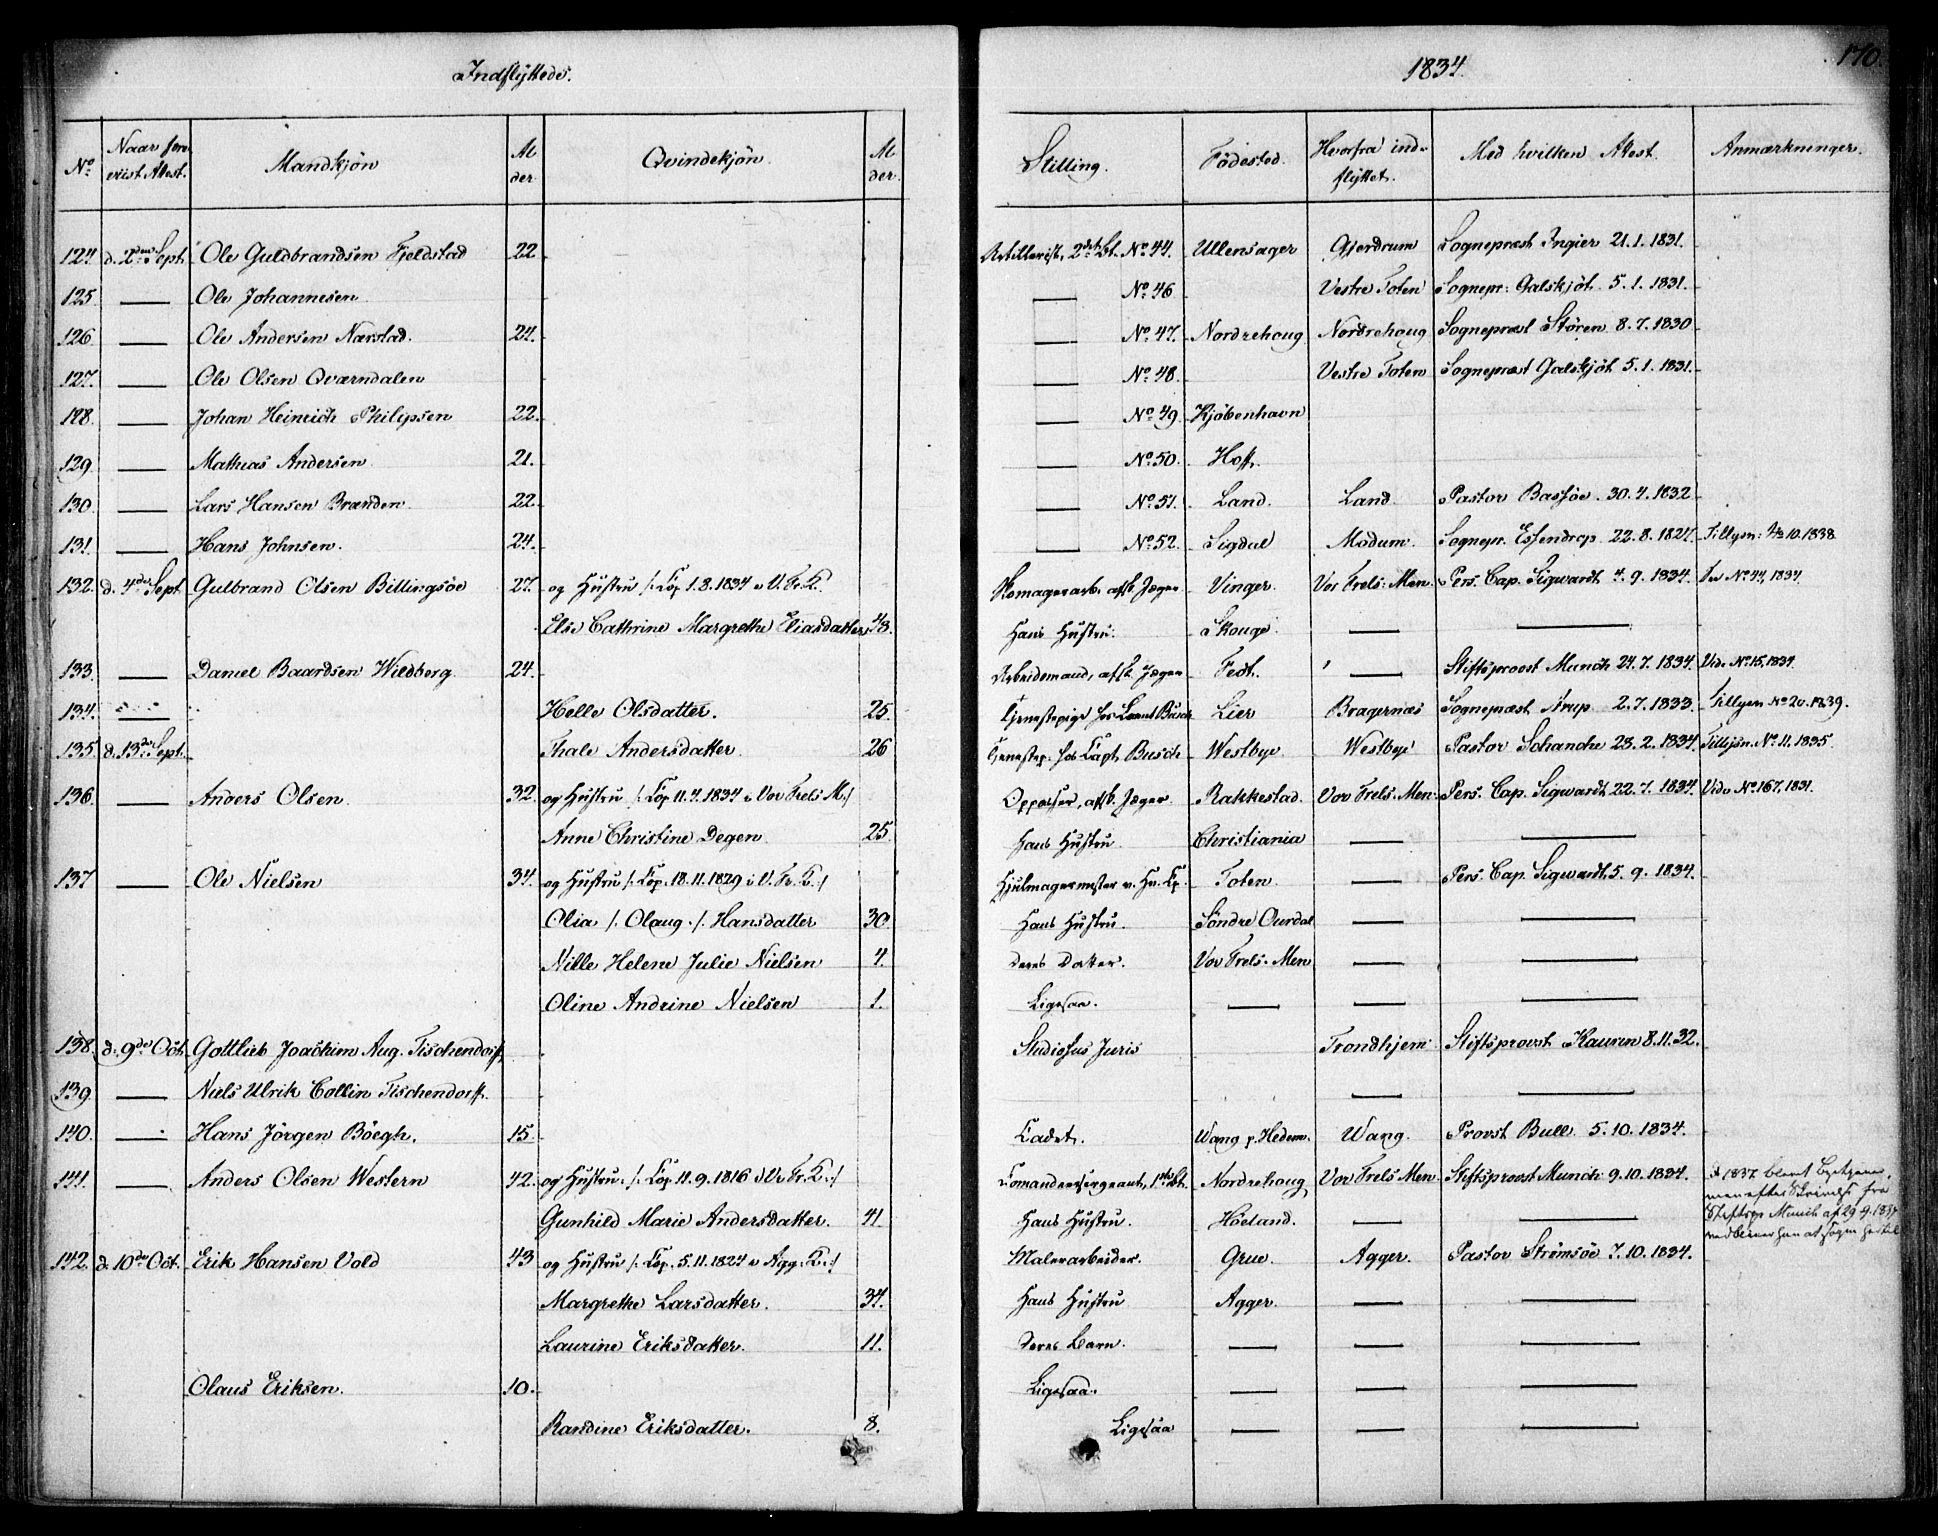 Indflyttede. 1834. 170.
No Naar fore-viist Attest. Mandkjön Al-der Qvindekjön Al-der. Stilling. Födested. Hvorfra ind-flyttet. Med hvilken Attest. Anmærkninger.
124 d. 2den Sept. Ole Guldbrandsen Fjeldstad 22 Artillerist, 2det Bt. No 44. Ullensager Gjerdrum Sognepræst Ingier 21.1.1831.
125 — Ole Johannesen — No 46 Vestre Toten Sognepr: Galskjöt 5.1.1831.
126 — Ole Andersen Nærstad. 24. — No 47. Nordrehoug Nordrehoug Sognepræst Stören 8.7.1830
127. — Ole Olsen Qværndalen — No 48. Vestre Toten Sognepræst Galskjöt 5.1.1831.
128. — Johan Heinrich Philipsen 22. — No 49 Kjöbenhavn
129 — Mathias Andersen 21. — No 50. Hoff.
130 — Lars Hansen Brænden 22. — No 51. Land. Land Pastor Bassöe. 30.4.1832
131 — Hans Johnsen. 24. — No 52. Sigdal Modum. Sognepr. Essendrop 22.8.1827. Tillysn: 10.1838
132. d. 4de Sept. Gulbrand Olsen Billingsöe 27. og Hustru /: Cop 1.8.1834 i V. Fr. K. Komagerarb. afsk. Jæger Vinger. Vor Frels: Men. Pers. Cap. Sigwardt 4.9.1834. No 44, 1834
Else Cathrine Margrethe Eliasdatter 48. Hans Hustru. Skouge. — —
133. — Daniel Baardsen Wildberg 24. Arbeidsmand, afsk. Jæger Fedt. — Stiftsprovst Munch 24.7.1834. Vide No 15, 1834
134. — Helle Olsdatter. 25. Tjenestepige hos Busch Lier Bragernæs Sognepræst Arup 2.7.1833. Tillysn No 20. 1839.
135. d. 13de Sept. Thale Andersdatter. 26 Tjenestep. hos Capt Busch Westbye Westbye Pastor Schanche 28.2.1834. Tillysn. No 11. 1835
136. — Anders Olsen 32. og Hustru /: Cop 11.4.1834 i Vor Frels M:/ Oppasser, afsk. Jæger. Rakkestad. Vor Frels. Men. Pers. Cap. Sigwardt 22.7.1834. Vide No 167, 1831.
Anne Christine Degen. 25. Hans Hustru Christiania — —
137 — Ole Nielsen 34. og Hustru /: Cop. 18.11.1829 i V. Fr. K:/ Hjulmagermester v. Toten — Pers. Cap. Sigwardt, 5.9.1834.
Olia /: Olaug :/ Hansdatter 30. Hans Hustru. Söndre Ourdal — —
Nille Helene Julie Nielsen 4. Deres Datter. Vor Frels. Men — —
Oline Andrine Nielsen 1. Ligesaa. — — —
138. d. 9de Oct. Gottlieb Joachim Aug. Tischendorff Studiosus Juris Trondhjem Stiftsprovst Kaurin 8.11.32.
139 — Niels Ulrik Collin Tischendorff. — —
140. — Hans Jörgen Böegh. 15. Cadet. Wang p. Hedem. Wang. Provst Bull. 5.10.1834.
141. — Anders Olsen Western 42. og Hustru /: Cop 11.9.1816 i V. Fr. K:/ Comandeersergeant, 1ste Bt. Nordrehoug Vor Frels Men Stiftsprovst Munch 9.10.1834. 1837 blevet
men efter Skrivelse fra
Gunhild Marie Andersdatter. 41 Hans Hustru. Höeland. — — Stiftspr Munch af 29.9.1837
142. d. 10de Oct. Erik Hansen Vold 43 og Hustru /: Cop. 5.11.1824 i Agg. K:/ Malerarbeider. Grue. Agger. Pastor Strömsöe 7.10.1834. vedbliver han at
Margrethe Larsdatter. 34. Hans Hustru Agger. — —
Laurine Eriksdatter. 11. Deres Barn. — — —
Olaus Eriksen. 10. Ligesaa. — — —
Randine Eriksdatter. 8. Ligesaa — — —